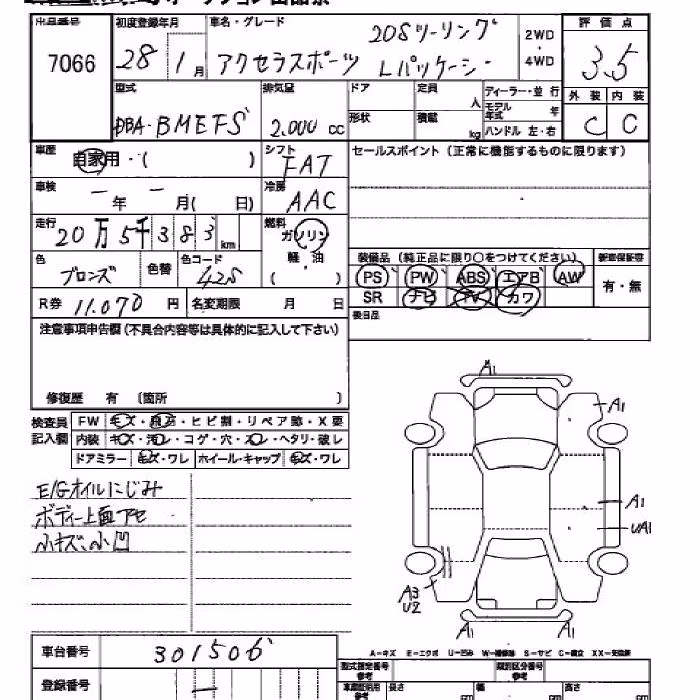 出品番号 初度登録年月 車名・グレード 評価点
7066 28年 1月 アクセラスポーツ 20Sツーリング Lパッケージー 2WD・4WD 3.5
外装 内装
C C
型式 排気量 ドア 定員 人 ディーラー・並行
モデル年式 年
DBA-BMEFS 2.000cc 形状 積載 kg ハンドル 左・右
車歴 自家用・( ) シフト FAT セールスポイント(正常に機能するものに限ります)
車検 ー年 ー月( 日) 冷房 AAC
走行 20万5千383km 燃料 ガソリン
軽・油
( )
色 ブロンズ 色替 色コード 42S
装備品(純正品に限り○をつけてください) 新車保証書
PS PW ABS エアB AW 有・無
SR ナビ TV カワ
R券 11.070円 名変期限 月 日 後日品
注意事項申告欄(不具合内容等は具体的に記入して下さい)
修復歴 有 〔箇所 〕
検査員 FW キズ・飛石・ヒビ割・リペア跡・X要
記入欄 内装 キズ・汚レ・コゲ・穴・スレ・ヘタリ・破レ
ドアミラー キズ・ワレ ホイール・キャップ キズ・ワレ
E/Gオイルにじみ
ボディー上面アセ
小キズ、小凹
A1
A1
A1
UA1
A3
U2
A1 A1
A−キズ E−エクボ U−凹み W−補修跡 S−サビ C−腐立 XX−交換跡
車台番号 301506
型式指定番号 参考 類別区分番号 参考
登録番号 ー
車庫証明用 参考 長さ cm 幅 cm 高さ cm